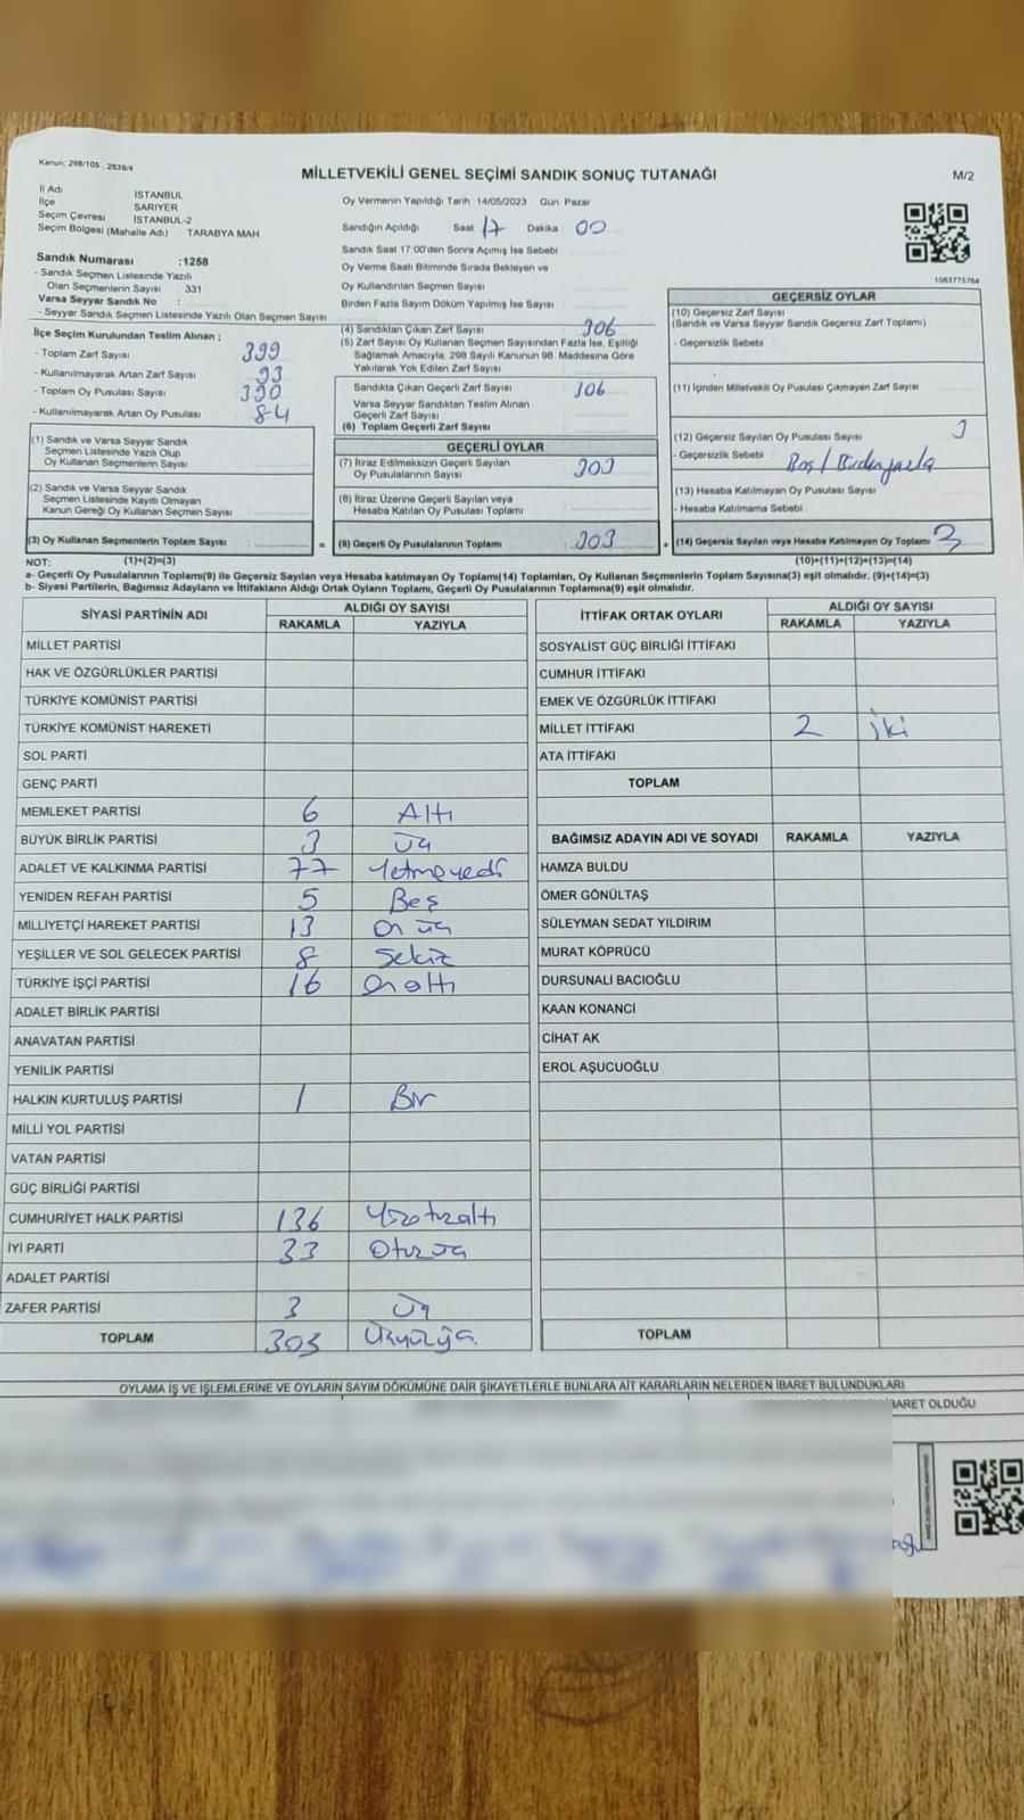 Kanun: 298/105 , 2839/4
MİLLETVEKİLİ GENEL SEÇİMİ SANDIK SONUÇ TUTANAĞI
M/2
İl Adı İSTANBUL
İlçe SARIYER
Seçim Çevresi İSTANBUL-2
Seçim Bölgesi (Mahalle Adı) TARABYA MAH
Sandık Numarası :1258
- Sandık Seçmen Listesinde Yazılı
Olan Seçmenlerin Sayısı 331
Varsa Seyyar Sandık No :
- Seyyar Sandık Seçmen Listesinde Yazılı Olan Seçmen Sayısı
İlçe Seçim Kurulundan Teslim Alınan :
- Toplam Zarf Sayısı 399
- Kullanılmayarak Artan Zarf Sayısı 93
- Toplam Oy Pusulası Sayısı 390
- Kullanılmayarak Artan Oy Pusulası 84
(1) Sandık ve Varsa Seyyar Sandık
Seçmen Listesinde Yazılı Olup
Oy Kullanan Seçmenlerin Sayısı
(2) Sandık ve Varsa Seyyar Sandık
Seçmen Listesinde Kayıtlı Olmayan
Kanun Gereği Oy Kullanan Seçmen Sayısı
(3) Oy Kullanan Seçmenlerin Toplam Sayısı
Oy Vermenin Yapıldığı Tarih 14/05/2023 Gün Pazar
Sandığın Açıldığı Saat 17 Dakika 00
Sandık Saat 17:00'den Sonra Açmış İse Sebebi
Oy Verme Saati Bitiminde Sırada Bekleyen ve
Oy Kullandırılan Seçmen Sayısı
Birden Fazla Sayım Döküm Yapılmış İse Sayısı
(4) Sandıktan Çıkan Zarf Sayısı 306
(5) Zarf Sayısı Oy Kullanan Seçmen Sayısından Fazla İse, Eşitliği
Sağlamak Amacıyla, 298 Sayılı Kanunun 98. Maddesine Göre
Yakılarak Yok Edilen Zarf Sayısı
Sandıkta Çıkan Geçerli Zarf Sayısı 306
Varsa Seyyar Sandıktan Teslim Alınan
Geçerli Zarf Sayısı
(6) Toplam Geçerli Zarf Sayısı
GEÇERLİ OYLAR
(7) İtiraz Edilmeksizin Geçerli Sayılan
Oy Pusulalarının Sayısı 303
(8) İtiraz Üzerine Geçerli Sayılan veya
Hesaba Katılan Oy Pusulası Toplamı
(9) Geçerli Oy Pusulalarının Toplamı 303
1083775764
GEÇERSİZ OYLAR
(10) Geçersiz Zarf Sayısı
(Sandık ve Varsa Seyyar Sandık Geçersiz Zarf Toplamı)
- Geçersizlik Sebebi
(11) İçinden Milletvekili Oy Pusulası Çıkmayan Zarf Sayısı
(12) Geçersiz Sayılan Oy Pusulası Sayısı 3
- Geçersizlik Sebebi Boş / Birden fazla
(13) Hesaba Katılmayan Oy Pusulası Sayısı
- Hesaba Katılmama Sebebi
(14) Geçersiz Sayılan veya Hesaba Katılmayan Oy Toplamı 3
NOT: (1)+(2)=(3) (10)+(11)+(12)+(13)=(14)
a- Geçerli Oy Pusulalarının Toplamı(9) ile Geçersiz Sayılan veya Hesaba katılmayan Oy Toplamı(14) Toplamları, Oy Kullanan Seçmenlerin Toplam Sayısına(3) eşit olmalıdır. (9)+(14)=(3)
b- Siyasi Partilerin, Bağımsız Adayların ve İttifakların Aldığı Ortak Oyların Toplamı, Geçerli Oy Pusulalarının Toplamına(9) eşit olmalıdır.
SİYASİ PARTİNİN ADI ALDIĞI OY SAYISI
RAKAMLA YAZIYLA
MİLLET PARTİSİ
HAK VE ÖZGÜRLÜKLER PARTİSİ
TÜRKİYE KOMÜNİST PARTİSİ
TÜRKİYE KOMÜNİST HAREKETİ
SOL PARTİ
GENÇ PARTİ
MEMLEKET PARTİSİ 6 Altı
BÜYÜK BİRLİK PARTİSİ 3 Üç
ADALET VE KALKINMA PARTİSİ 77 Yetmişyedi
YENİDEN REFAH PARTİSİ 5 Beş
MİLLİYETÇİ HAREKET PARTİSİ 13 On üç
YEŞİLLER VE SOL GELECEK PARTİSİ 8 Sekiz
TÜRKİYE İŞÇİ PARTİSİ 16 Onaltı
ADALET BİRLİK PARTİSİ
ANAVATAN PARTİSİ
YENİLİK PARTİSİ
HALKIN KURTULUŞ PARTİSİ 1 Bir
MİLLİ YOL PARTİSİ
VATAN PARTİSİ
GÜÇ BİRLİĞİ PARTİSİ
CUMHURİYET HALK PARTİSİ 136 Yüzotuzaltı
İYİ PARTİ 33 Otuzüç
ADALET PARTİSİ
ZAFER PARTİSİ 3 Üç
TOPLAM 303 Üçyüzüç
İTTİFAK ORTAK OYLARI ALDIĞI OY SAYISI
RAKAMLA YAZIYLA
SOSYALİST GÜÇ BİRLİĞİ İTTİFAKI
CUMHUR İTTİFAKI
EMEK VE ÖZGÜRLÜK İTTİFAKI
MİLLET İTTİFAKI 2 İki
ATA İTTİFAKI
TOPLAM
BAĞIMSIZ ADAYIN ADI VE SOYADI RAKAMLA YAZIYLA
HAMZA BULDU
ÖMER GÖNÜLTAŞ
SÜLEYMAN SEDAT YILDIRIM
MURAT KÖPRÜCÜ
DURSUNALİ BACIOĞLU
KAAN KONANCİ
CİHAT AK
EROL AŞUCUOĞLU
TOPLAM
OYLAMA İŞ VE İŞLEMLERİNE VE OYLARIN SAYIM DÖKÜMÜNE DAİR ŞİKAYETLERLE BUNLARA AİT KARARLARIN NELERDEN İBARET BULUNDUKLARI
BARET OLDUĞU